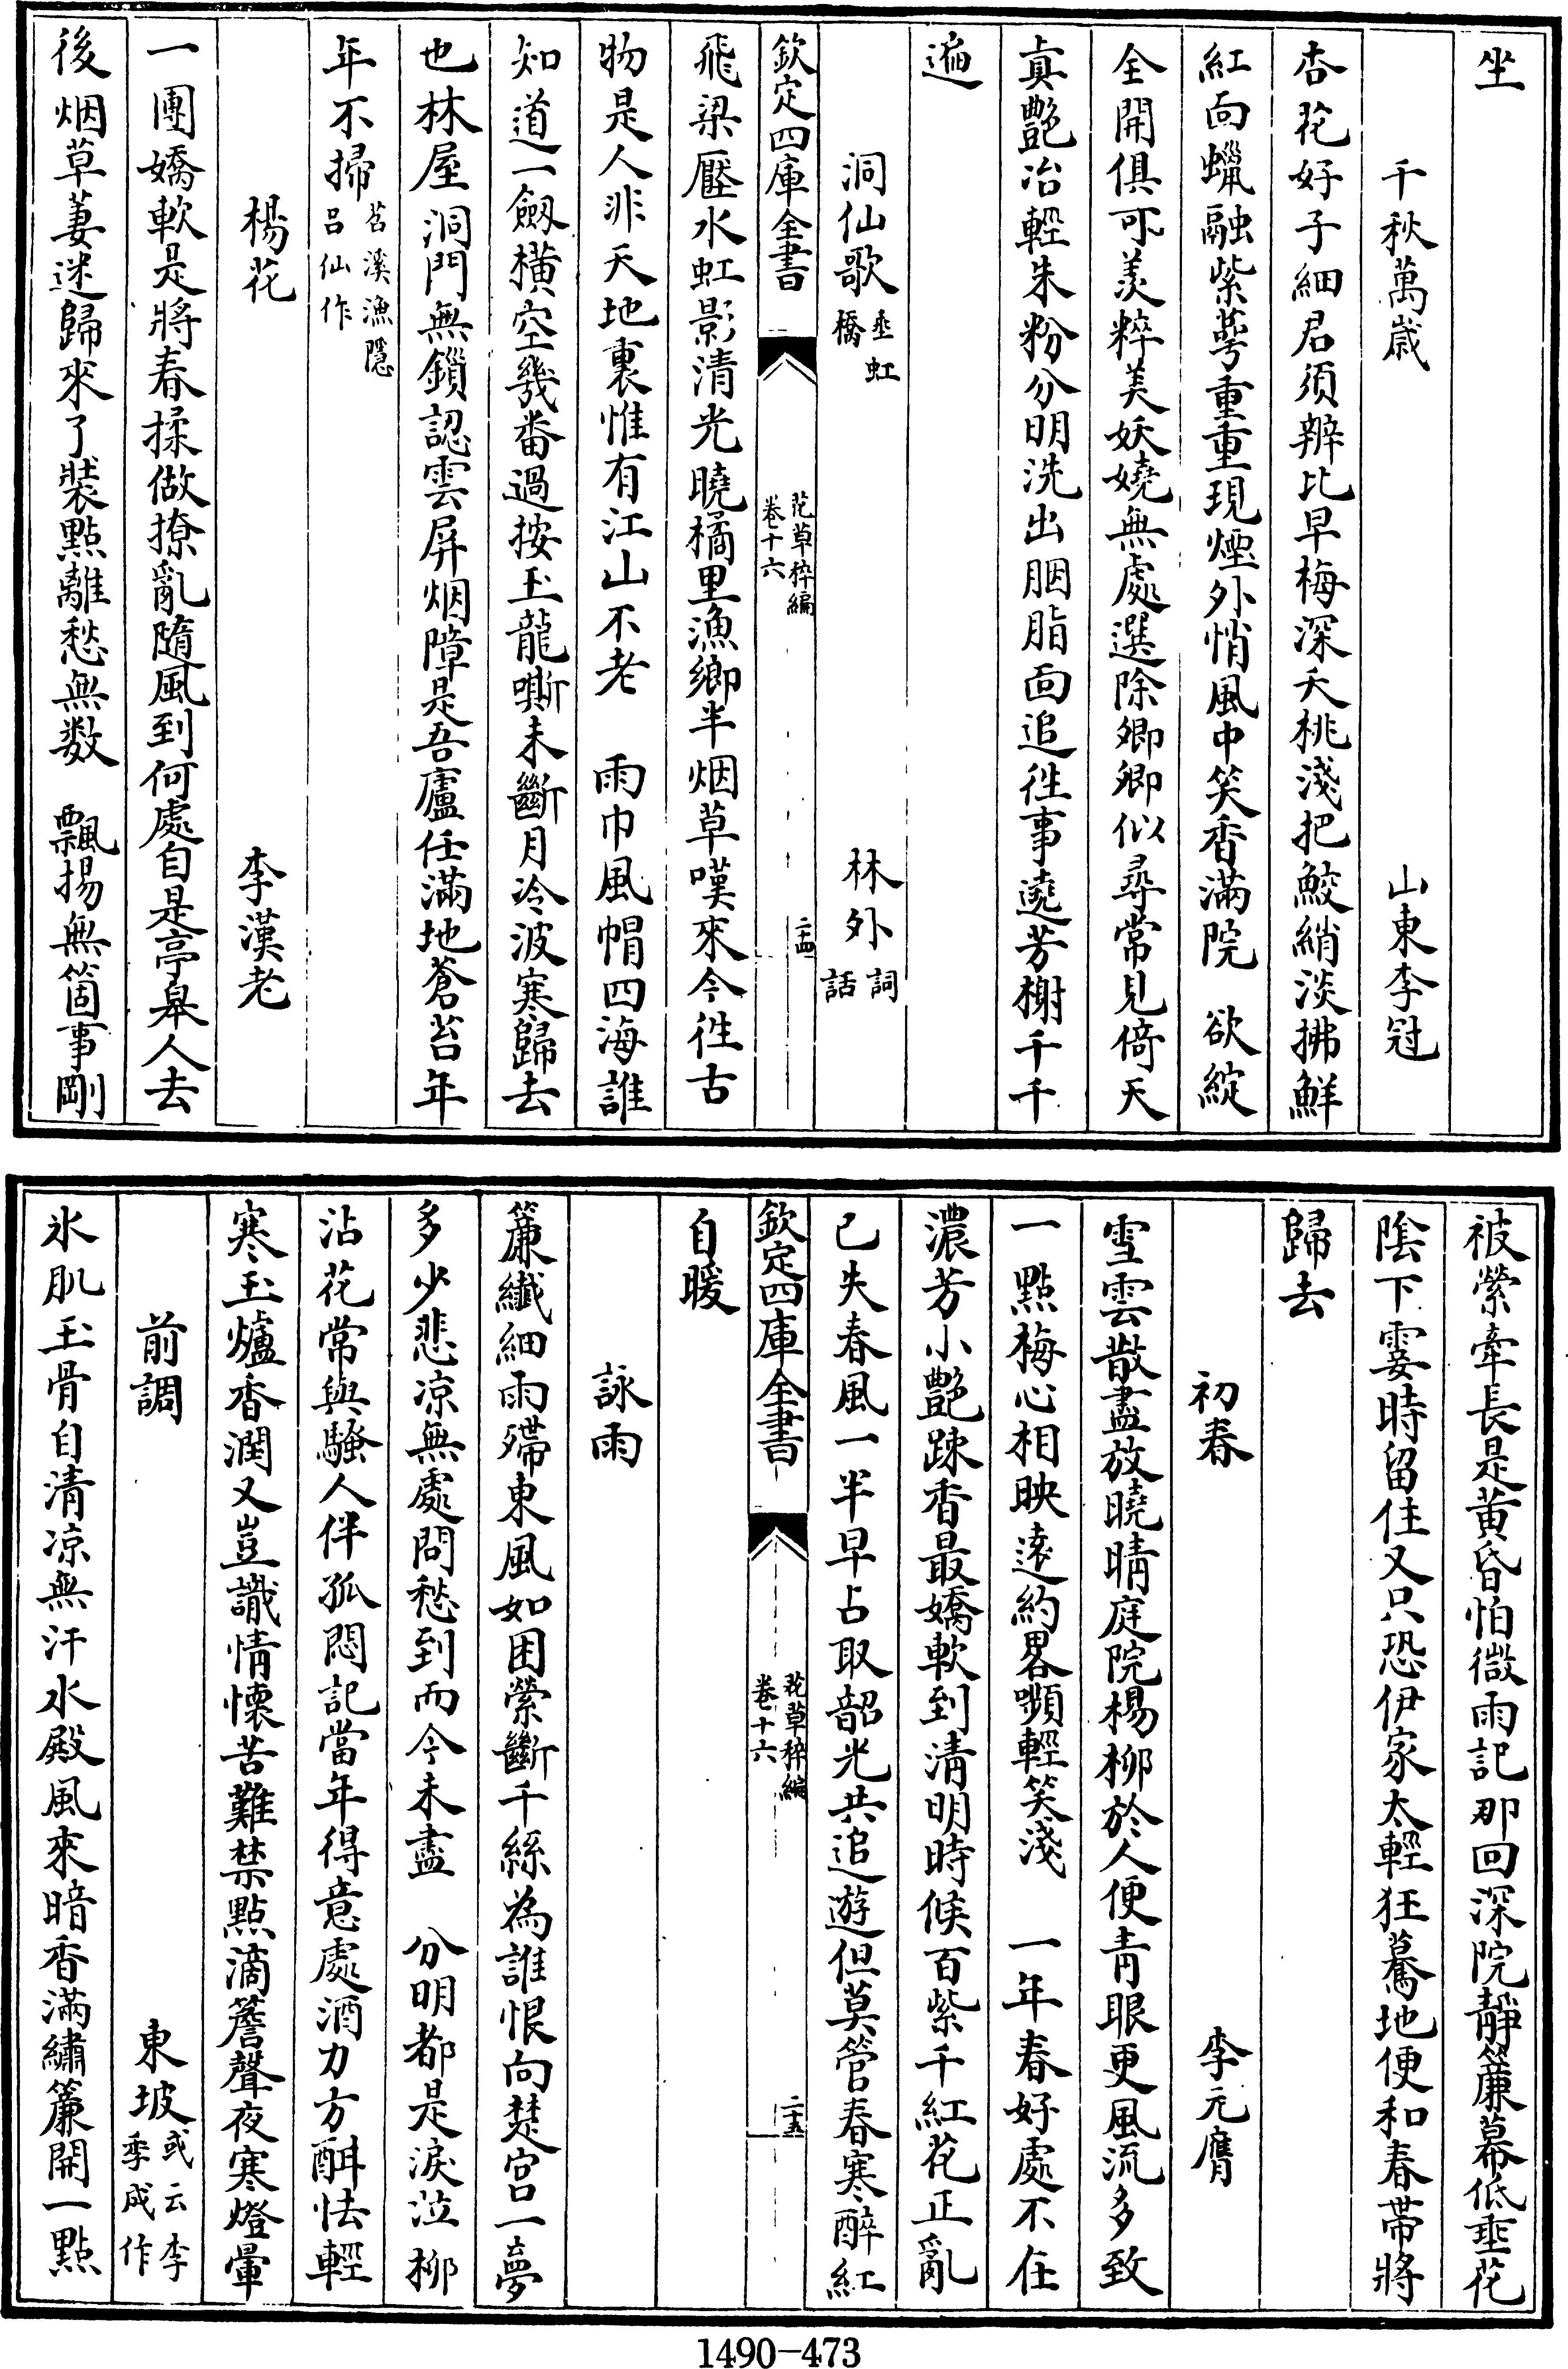 坐
千秋萬歲　山東李冠
杏花好子細君須辨比早梅深夭桃淺把鮫綃淡拂鮮
紅面蠟融紫萼重重現煙外悄風中笑香滿院　欲綻
全開俱可羨粹美妖嬈無處選除卿卿似尋常見倚天
真艷冶輕朱粉分明洗出胭脂面追徃事遶芳榭千千
遍
洞仙歌垂虹橋　林外詞話
欽定四庫全書　花草稡編卷十六　二十四
飛梁壓水虹影清光曉橘里漁鄉半烟草嘆來今徃古
物是人非天地裏惟有江山不老　雨巾風帽四海誰
知道一劔橫空幾番過按玉龍嘶未斷月冷波寒歸去
也林屋洞門無鎖認雲屏烟障是吾廬任滿地蒼苔年
年不掃苕溪漁隱吕仙作
楊花　李漢老
一團嬌軟是將春揉做撩亂隨風到何處自是亭皋人去
後烟草萋迷歸來了裝點離愁無數　飄揚無箇事剛
被縈牽長是黃昏怕微雨記那回深院靜簾幕低垂花
陰下霎時留住又只恐伊家太輕狂驀地便和春帶將
歸去
初春　李元膺
雪雲散盡放曉晴庭院楊柳於人便青眼更風流多致
一點梅心相映遠約畧嚬輕笑淺　一年春好處不在
濃芳小艷踈香最嬌軟到清明時候百紫千紅花正亂
已失春風一半早占取韶光共追遊但莫管春寒醉紅
欽定四庫全書　花草稡編卷十六　二十五
自暖
詠雨
簾纖細雨殢東風如困縈斷千絲為誰恨向楚宫一夢
多少悲凉無處問愁到而今未盡　分明都是淚泣柳
沾花常與騷人伴孤悶記當年得意處酒力方酣怯輕
寒玉爐香潤又豈識情懷苦難禁點滴簷聲夜寒燈暈
前調　東坡或云李季成作
氷肌玉骨自清凉無汗水殿風來暗香滿繡簾開一點
1490-473